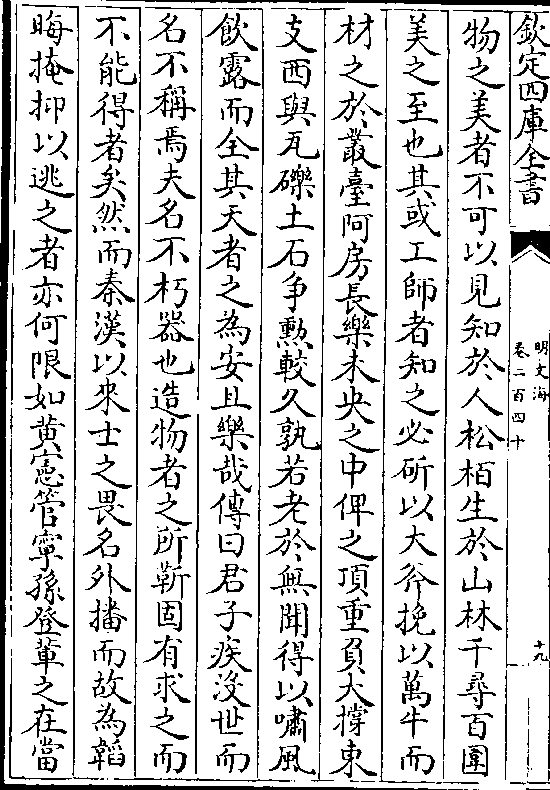 欽定四庫全書
明文海
卷二百四十
十九
物之美者不可以見知於人松栢生於山林千尋百圍
美之至也其或工師者知之必斫以大斧挽以萬牛而
材之於叢臺阿房長樂未央之中俾之項重負大撐東
支西與瓦礫土石争勲較久孰若老於無聞得以嘯風
飲露而全其天者之為安且樂哉傳曰君子疾沒世而
名不稱焉夫名不朽器也造物者之所靳固有求之而
不能得者矣然而秦漢以來士之畏名外播而故為韜
晦掩抑以逃之者亦何限如黄憲管寧孫登軰之在當